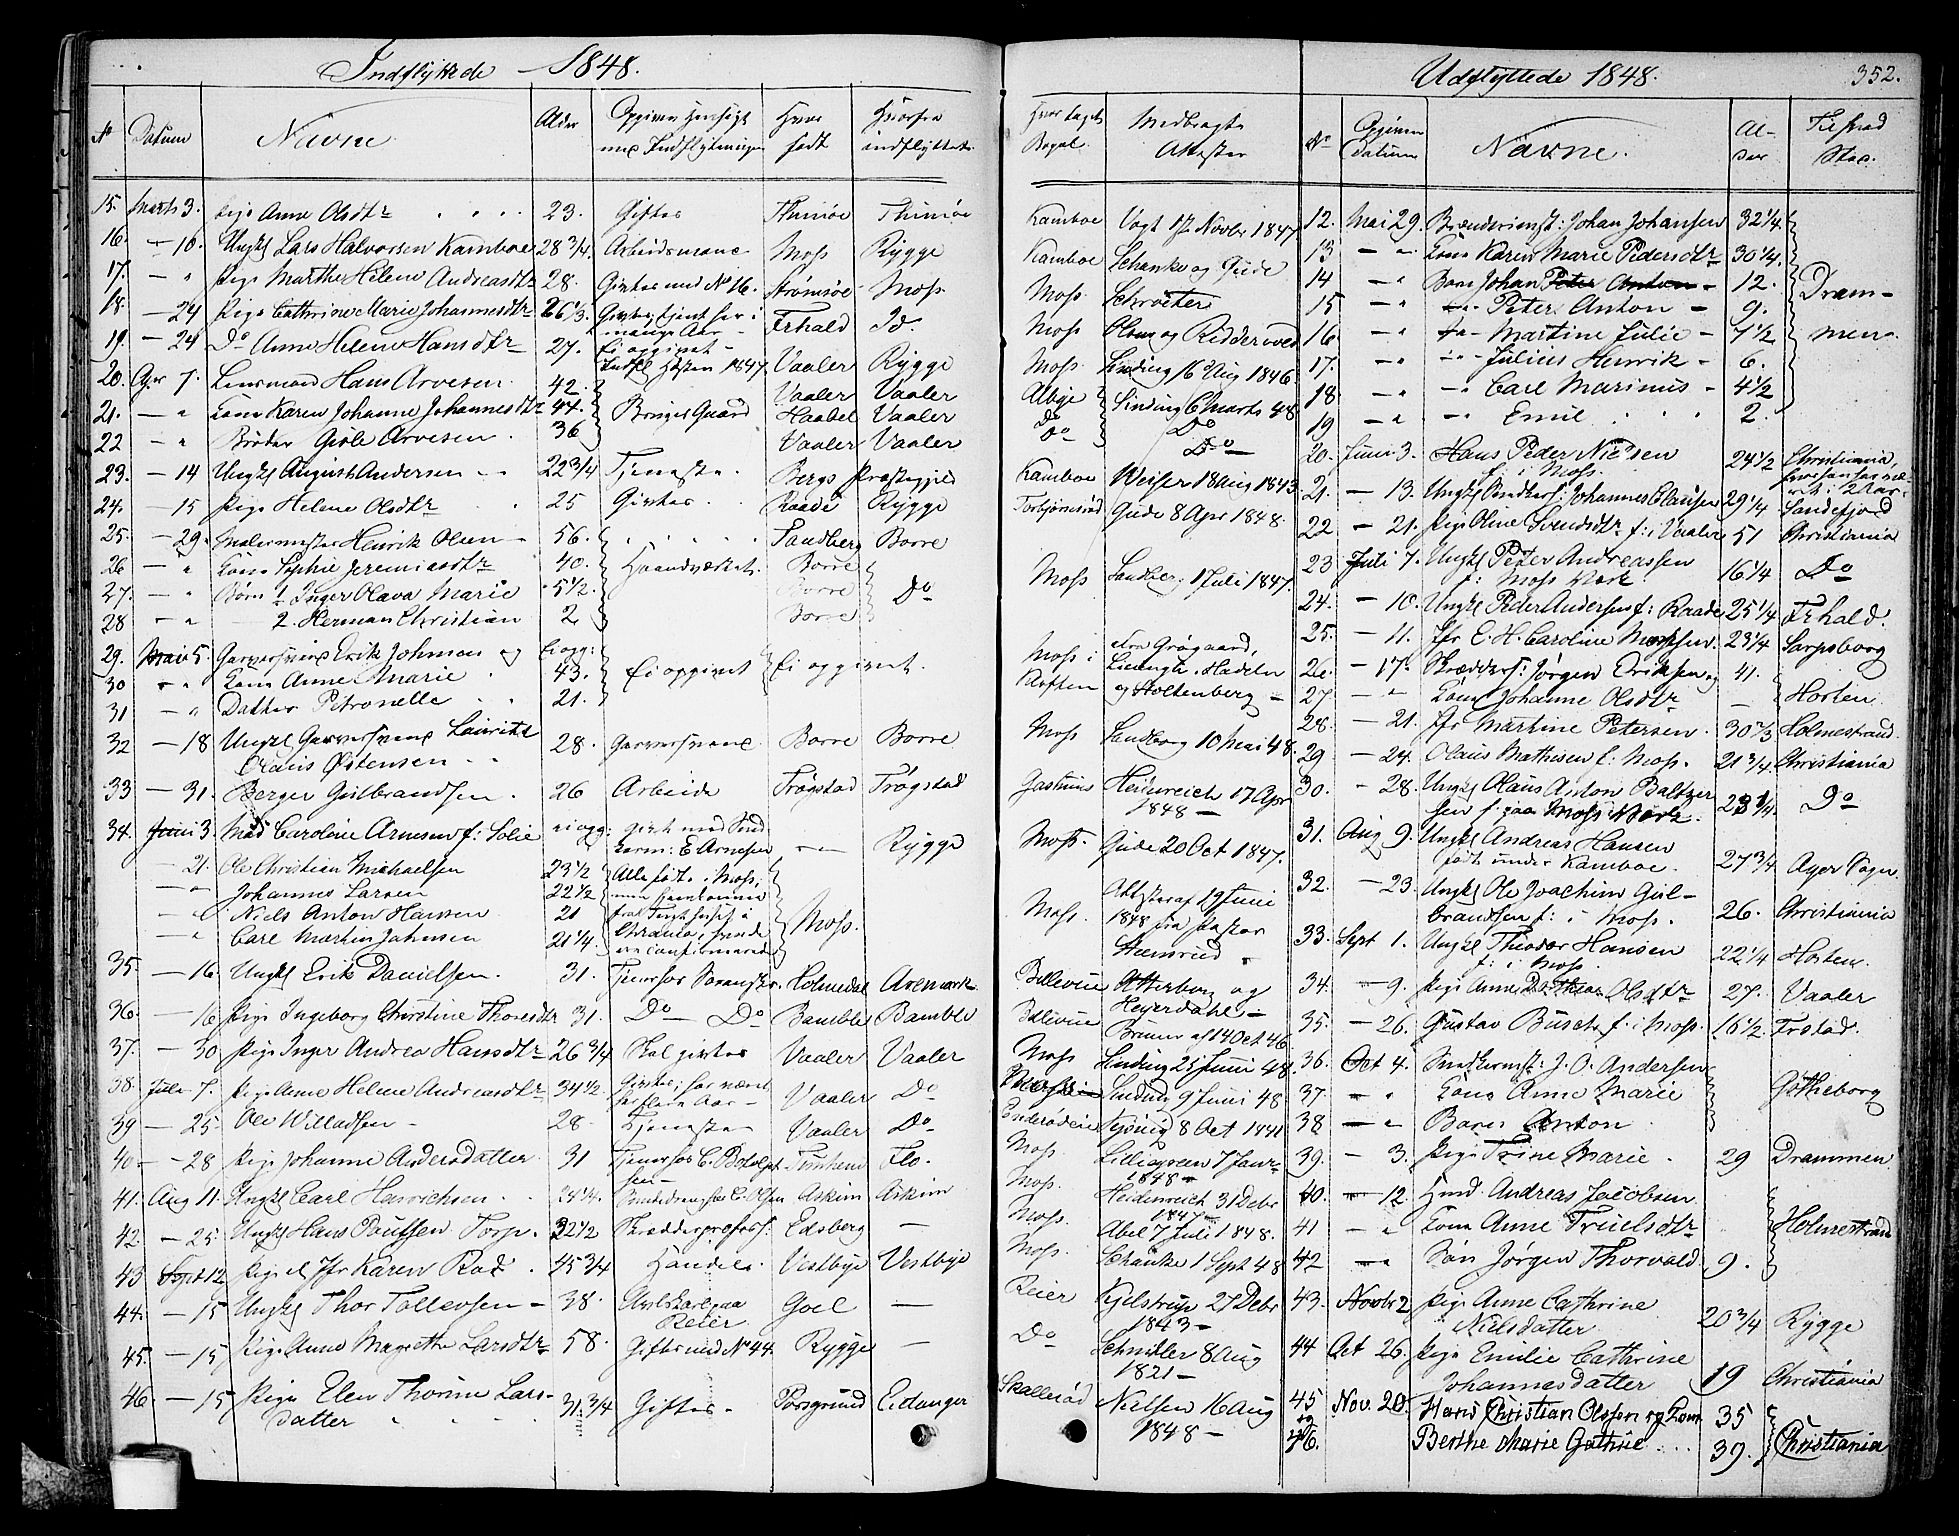 Indflyttede 1848.
No Datum Navne Alder Opgiven Hensigt med Indflytningen Hvor født Hvorfra indflyttede
15. Marts 3. Pige Anne Olsdtr 23. Giftes Thimøe Thimøe
16. — 10. Ungkl Lars Halvorsen Kamboe 28 3/4. Arbeidsmand Moss Rygge
17. — " Pige Marthe Helene Andreasdtr 28. Giftes med No 16. Strømsøe Moss
18. — 24 Pige Cathrine Marie Johannesdtr 26 1/3. Giftes, tjent her i mange Aar — Frhald Id.
19. — 24 Do Anne Helene Hansdtr 27. Ei opgivet — Indfl. Høsten 1847. Vaaler Rygge
20. Apr 7. Lensmand Hans Arvesen 42. Vaaler Vaaler
21. — " Kone Karen Johanne Johannesdtr 44. Bruger Gaard Haabøl Vaaler
22 — " Broder Gisle Arvesen. 36 Vaaler Vaaler
23. — 14 Ungkl August Andersen 22 3/4 Tjeneste. Bergs Præstegjeld
24. — 15 Pige Helene Olsdtr 25 Giftes. Raade Rygge
25. — 29. Malermester Henrik Olsen — 56. Sandberg Borre
26 — " Kone Sophie Jeremiasdtr 40. Haandværket. Borre
27. — " Børn 1 Inger Olava Marie 5 1/2. Borre Do
28 — " 2. Herman Christian 2. Borre
29. Mai 5. Garversvend Erik Johnson og Ei opg:
30 " " Kone Anne Marie 43. Ei opgivet Ei opgivet.
31 — " Datter Petronelle 21.
32 — 18 Ungkl Garversvend Lauritz Olaus Østensen 28. Garversvend Borre Borre
33 — 31. Berger Gulbrandsen. 26 Arbeide Trøgstad Trøgstad
34. Juni 3. Mad Caroline Arnesen f: Solie ei opg: Givt med Snedkerm: E Arnesen — Rygge
— 21. Ole Christian Michaelsen 23 1/2 Alle født i Moss,
— " Johannes Larsen 22 1/2
— " Niels Anton Hansen 21 Moss.
— " Carl Martin Johnsen 21 1/4
35. — 16. Ungkl Erik Danielsen. 31. Holmedal Aremark
36. — 16 Pige Ingeborg Christine Thoresdtr 31. Do — Do Bamble Bamble
37. — 30 Pige Inger Andrea Hansdtr 26 3/4 Skal giftes Vaaler Vaaler
38. Juli 7. Pige Anne Helene Andreasdtr 34 1/2 Giftes; har været her flere Aar — Vaaler Do
39 — 25. Ole Willadsen — 28. Tjeneste Vaaler Do
40 — 28 Pige Johanne Andersdatter 31 Flo.
41. Aug 11. Ungkl Carl Hanrichsen Askim Askim
42. — 25 Ungkl Hans Poulsen Torp. 22 1/2 Skrædderprofess: Edsberg —
43 Sept 12 Pige el Jfr Karen Rod. 45 3/4 Handel. Vestbye Vestbye
44. — 15 Ungkl Thor Tollevsen — 38. Avlskarl paa Reier Goel —
45. — 15 Pige Anne Magrethe Larsdtr 58. Giftes med No 44. Rygge —
46. — 15 Pige Elen Thorine Larsdatter 31. 3/4 Giftes — Porsgrund Eidanger

Hvor taget Bopæl. Medbragte Attester
Kamboe Vogt 17 Novbr 1847
Kamboe Schanke og Gude
Moss Schrøeter
Moss Olsen og Ridderwold
Moss Sinding 16 Aug 1846.
Albye Sinding 6 Marts 48
Do Do
Do Do —
Kamboe Weisser 18 Aug 1843.
Torbjørnsrød Gude 8 Apr 1848.
Moss Sandberg 17 Juli 1847.
Moss i Kløften Grøgaard, og Holtenberg —
Moss Sandberg 10 Mai 48.
Gashuus Heidenreich 17 Apr 1848 —
Moss. Gude 20 Oct 1847.
Moss. Attester af 19 Juni 1848 fra Pastor
Bellevue Atterbom og Heyerdahl.
Bellevue Bruun af 14 Oct 46
Moss Sinding 25 Juni 48.
Sinding 9 Juni 48
Enderødeie 8 Oct 1841
Moss. Lilleqveen 7 Janr 1848 —
Moss. Heidenreich 31 Debr 1847
Moss Abel 7 Juli 1848.
Moss. Schanke 1 Sept 48
Reier Kjelstrup 27 Debr 1843 —
Do Schmidler 8 Aug 1821 —
Skallerød Nielsen 16 Aug 1848 —

Udflyttede 1848. 352.
No Opgiven Datum Navne. Alder Tilflyt Sted.
12. Mai 29. Brænderimst: Johan Johansen 32 1/4.
13 — " Kone Karen Marie Pedersdtr 30 1/4.
14 — " Børn Johan Peter Anton — 12. Drammen.
15 — " Peter Anton — 9.
16 — " Martine Julie — 7 1/2
17. — " Julius Henrik — 6.
18 — " Carl Marinus — 4 1/2
19 — " Emil 2.
20. Juni 3. Hans Peder Nielsen f. i Moss. 24 1/2 Christiania,
21. — 13. Ungkl Snedkers: Johannes Clausen 29 1/4 Sandefjord
22 — 21. Pige Oline Svendsdtr f: i Vaaler 51 Christiania
23 Juli 7. Ungkl Peter Andreassen f: Moss Værk 16 1/4 Do
24. — 10. Ungkl Peder Andersen f: Raade 25 1/4 Frhald.
25. — 11. Jfr E. H. Caroline 23 1/4 Sarpsborg
26. — 17. Skrædders: Jørgen Eriksen og 41.
27 — " Kone Johanne Olsdtr — Horten.
28. — 21. Jfr Martine Petersen. 30 2/3 Holmestrand
29 — 24. Olaus Mathisen f: Moss. 21 3/4 Christiania
30. — 28. Ungkl Olaus Anton Baltzersen f. paa Moss Værk. 23 1/4 Do
31. Aug 9. Ungkl Andreas Hansen født under Kamboe. 27 3/4 Ager Sogn
32. — 23. Ungkl Ole Joachim Gulbrandsen f: i Moss. 26. Christiania
33. Sept 1. Ungkl Theodor Hansen f: i Moss. 22 1/4 Horten.
34. — 9. Pige Anne Dorthea Olsdtr 27. Vaaler
35. — 26. Gustav Busch f. i Moss. 16 1/2 Frstad.
36. Oct 4. Snedkermst: J. O. Andersen
37. " " Kone Anne Marie Gøtheborg
38 — " Barn Anton
39. — 3. Pige Trine Marie. 29 Drammen
40. — 12. Hmd. Andreas Jacobsen
41 — " Kone Anne Truelsdtr Holmestrand
42 — " Søn Jørgen Thorvald 9.
43. Novbr 2 Pige Anne Cathrine Nielsdatter 20 3/4 Rygge
44 Oct 26. Pige Emilie Cathrine Johannesdatter 19 Christiania
45 Nov. 20. Hans Christian Olssen og Kone 35
46. Berthe Marie Cathrie 39. Christiania